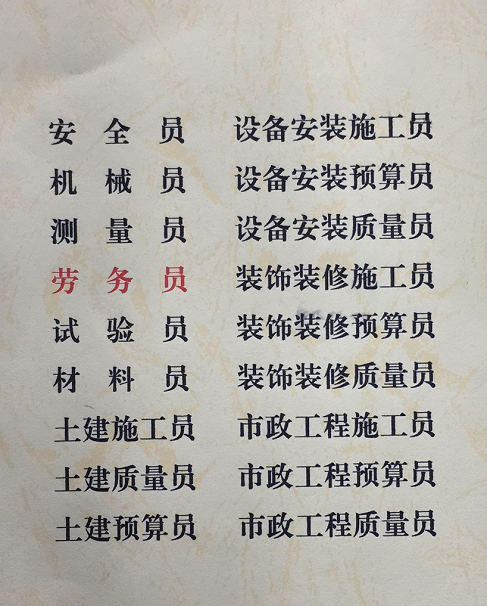 安全员 设备安装施工员
机械员 设备安装预算员
测量员 设备安装质量员
劳务员 装饰装修施工员
试验员 装饰装修预算员
材料员 装饰装修质量员
土建施工员 市政工程施工员
土建质量员 市政工程预算员
土建预算员 市政工程质量员